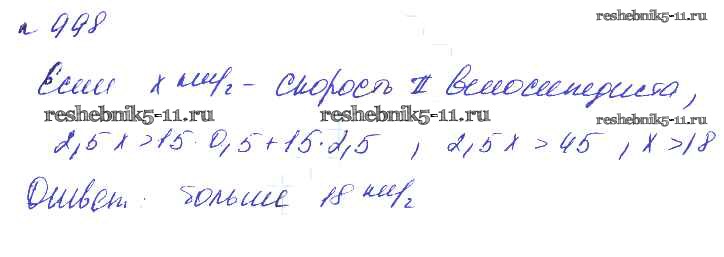 n 998
reshebnik5-11.ru
Если x км/г - скорость II велосипедиста,
reshebnik5-11.ru reshebnik5-11.ru reshebnik5-11.ru
2,5x>15·0,5+15·2,5 , 2,5x>45 , x>18
Ответ: больше 18 км/г